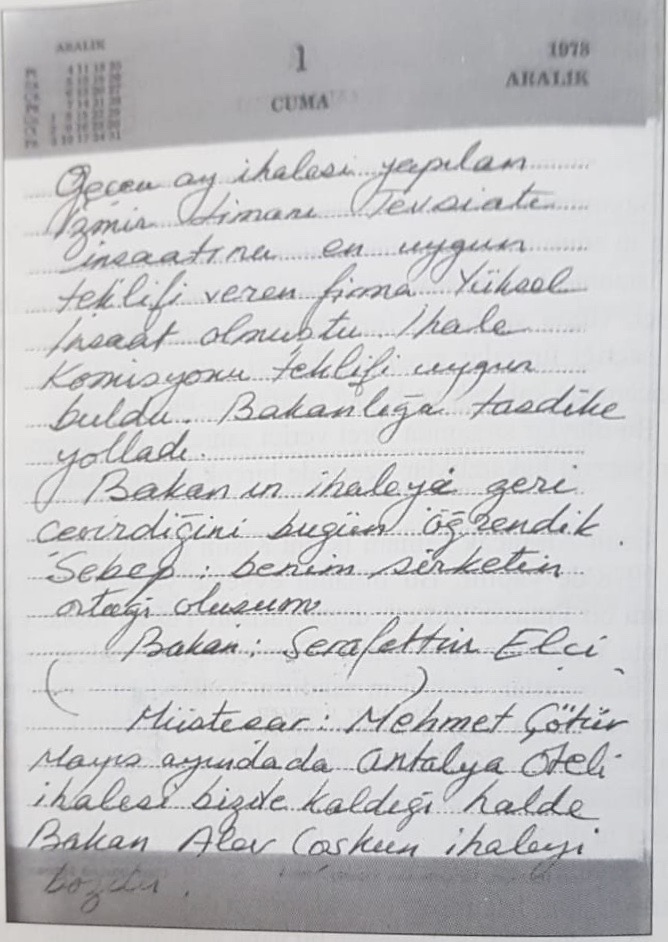 ARALIK
1
CUMA
1978
ARALIK
Geçen ay ihalesi yapılan
İzmir Limanı Tevsiatı
inşaatına en uygun
teklifi veren firma Yüksel
İnşaat olmuştu. İhale
Komisyonu teklifi uygun
buldu. Bakanlığa tasdike
yolladı.
Bakan'ın ihaleyi geri
çevirdiğini bugün öğrendik.
Sebep: benim şirketin
ortağı oluşum.
Bakan: Şerafettin Elçi
( )
Müsteşar: Mehmet
Mayıs ayındada Antalya Oteli
ihalesi bizde kaldığı halde
Bakan Alev Coşkun ihaleyi
bozdu.